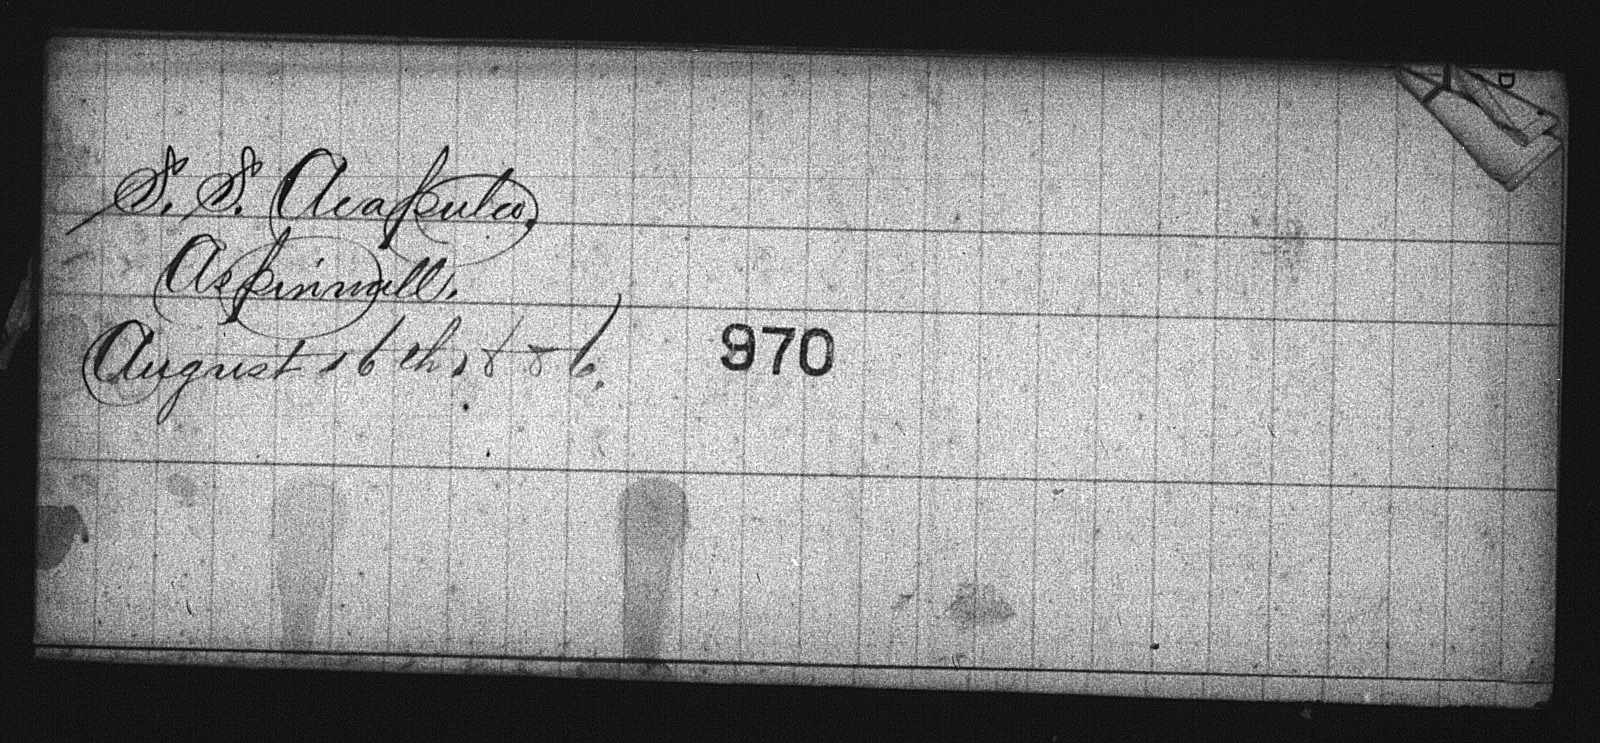 S. S. Acapulco,
Aspinwall.
August 16th, 1886,
970
D